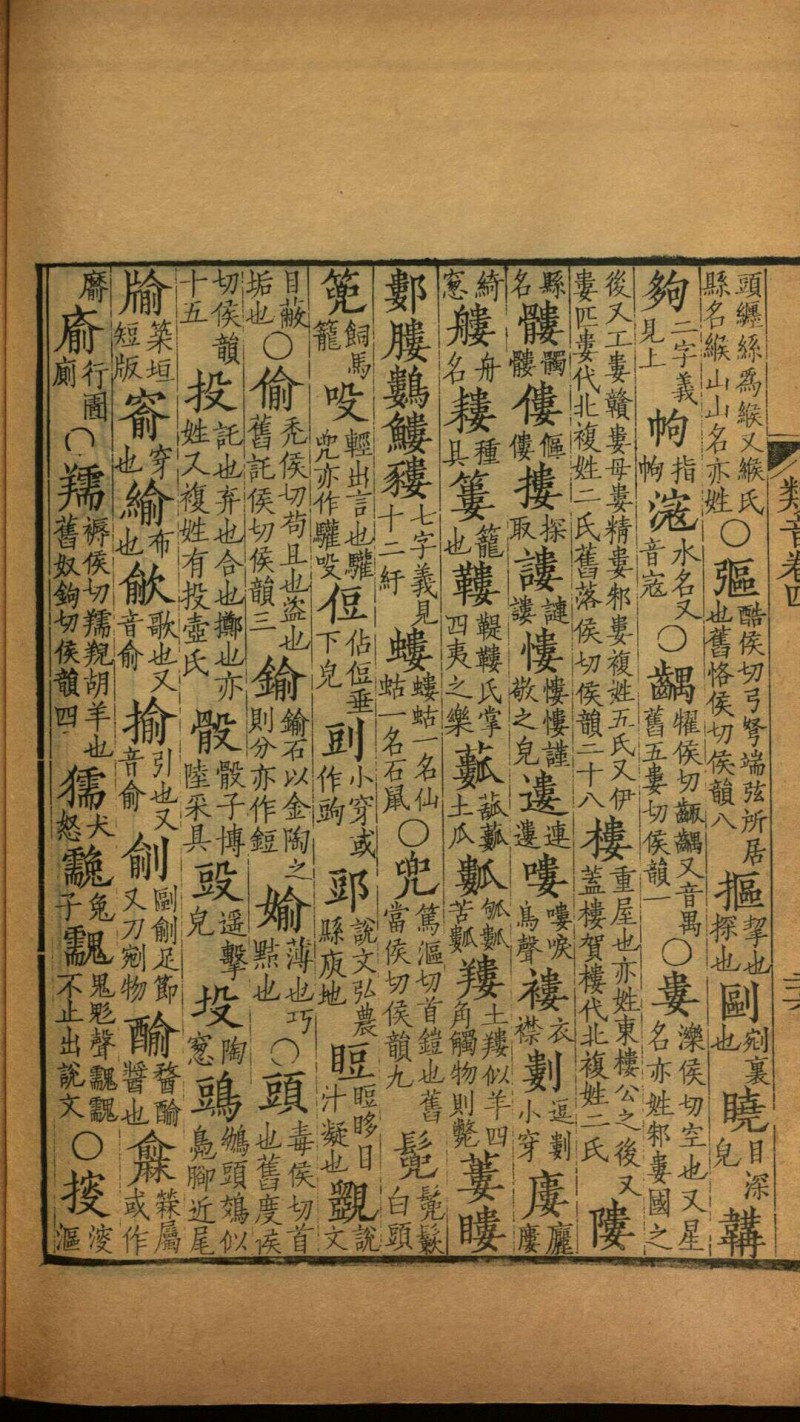 頭纏絲爲緱又緱氏縣名緱山山名亦姓○彄酷侯切弓弩端弦所居也舊恪侯切侯韻八摳挈也探也剾剜裏也目深皃
夠二字義見上指滱水名又音寇○齵㹞侯切齱齵又音禺舊五婁切侯韻一○婁濼侯切空也又星名亦姓邾婁國之
後又工婁贛婁母婁精婁邾婁複姓五氏又伊婁匹婁代北複姓二氏舊落侯切侯韻二十八樓重屋也亦姓東樓公之後又蓋樓賀樓代北複姓二氏𨻻
縣名髏髑髏僂傴僂摟探取謱謰謱慺慺慺謹敬之皃遱連遱嘍嘍唳鳥聲褸衣襟㔧逗㔧小穿廔廲廔
綺窻艛舟名耬種具簍籠也鞻鞮鞻氏掌四夷之樂土瓜苦䍣土䍣似羊四角觸物則斃蔞瞜
䣚膢鷜䱾貗七字義見十二紆螻螻蛄一名仙蛄一名石鼠○兜篤漚切首鎧也舊當侯切侯韻九白頭
篼飼馬籠吺輕出言也驩兜亦作驩吺侸佔侸垂下皃剅小穿或作郖說文弘農縣庾地䀺䀺眵目汁凝也覴說文
目蔽垢也○偷禿侯切苟且也盜也舊託侯切侯韻三鍮鍮石以金陶之則分亦作鋀媮薄也巧黠也○頭毒侯切首也舊度侯
切侯韻十五投託也弃也合也擲也亦姓又複姓有投壺氏骰骰子博陸采具遥擊皃陶窻鵃頭鵁似鳧腳近尾
牏築垣短版窬穿也緰布也歈歌也又音俞揄引也又音俞㓱剾㓱足筯又刀剜物醬也屬或作
行圊廁○羺褥侯切羺䍲胡羊也舊奴鉤切侯韻四獳犬怒兔子聲不止出說文○
類音卷四